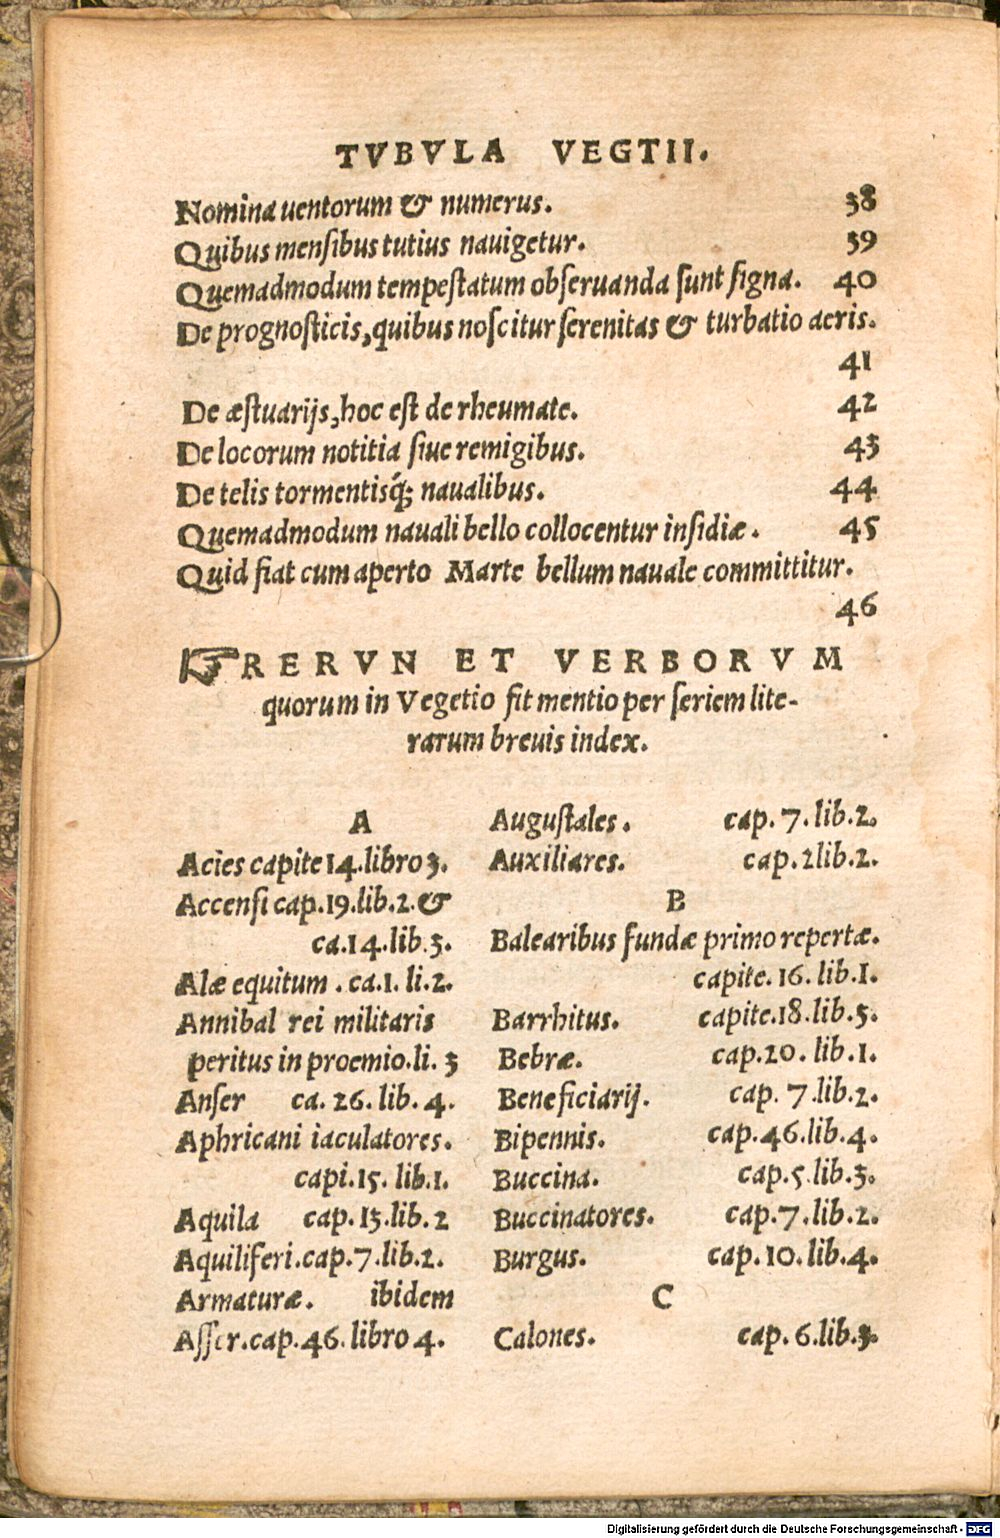 TVBVLA VEGTII.
Nomina uentorum & numerus. 38
Quibus mensibus tutius nauigetur. 39
Quemadmodum tempeſtatum obſeruanda ſunt ſigna. 40
De prognoſticis, quibus noſcitur ſerenitas & turbatio aeris.
41
De æſtuarijs, hoc eſt de rheumate. 42
De locorum notitia ſiue remigibus. 43
De telis tormentisq́; naualibus. 44
Quemadmodum nauali bello collocentur inſidiæ. 45
Quid fiat cum aperto Marte bellum nauale committitur.
46
☞ RERVN ET VERBORVM
quorum in Vegetio fit mentio per ſeriem lite-
rarum breuis index.
A
Acies capite 14. libro 3.
Accenſi cap. 19. lib. 2. &
ca. 14. lib. 3.
Alæ equitum. ca. 1. li. 2.
Annibal rei militaris
peritus in proemio. li. 3
Anſer ca. 26. lib. 4.
Aphricani iaculatores.
capi. 15. lib. 1.
Aquila cap. 13. lib. 2
Aquiliferi. cap. 7. lib. 2.
Armaturæ. ibidem
Aſſer. cap. 46. libro 4.
Auguſtales. cap. 7. lib. 2.
Auxiliares. cap. 2 lib. 2.
B
Balearibus fundæ primo repertæ.
capite. 16. lib. 1.
Barrhitus. capite. 18. lib. 3.
Bebræ. cap. 20. lib. 1.
Beneficiarij. cap. 7. lib. 2.
Bipennis. cap. 46. lib. 4.
Buccina. cap. 5. lib. 3.
Buccinatores. cap. 7. lib. 2.
Burgus. cap. 10. lib. 4.
C
Calones. cap. 6. lib. 3.
Digitalisierung gefördert durch die Deutsche Forschungsgemeinschaft - DFG